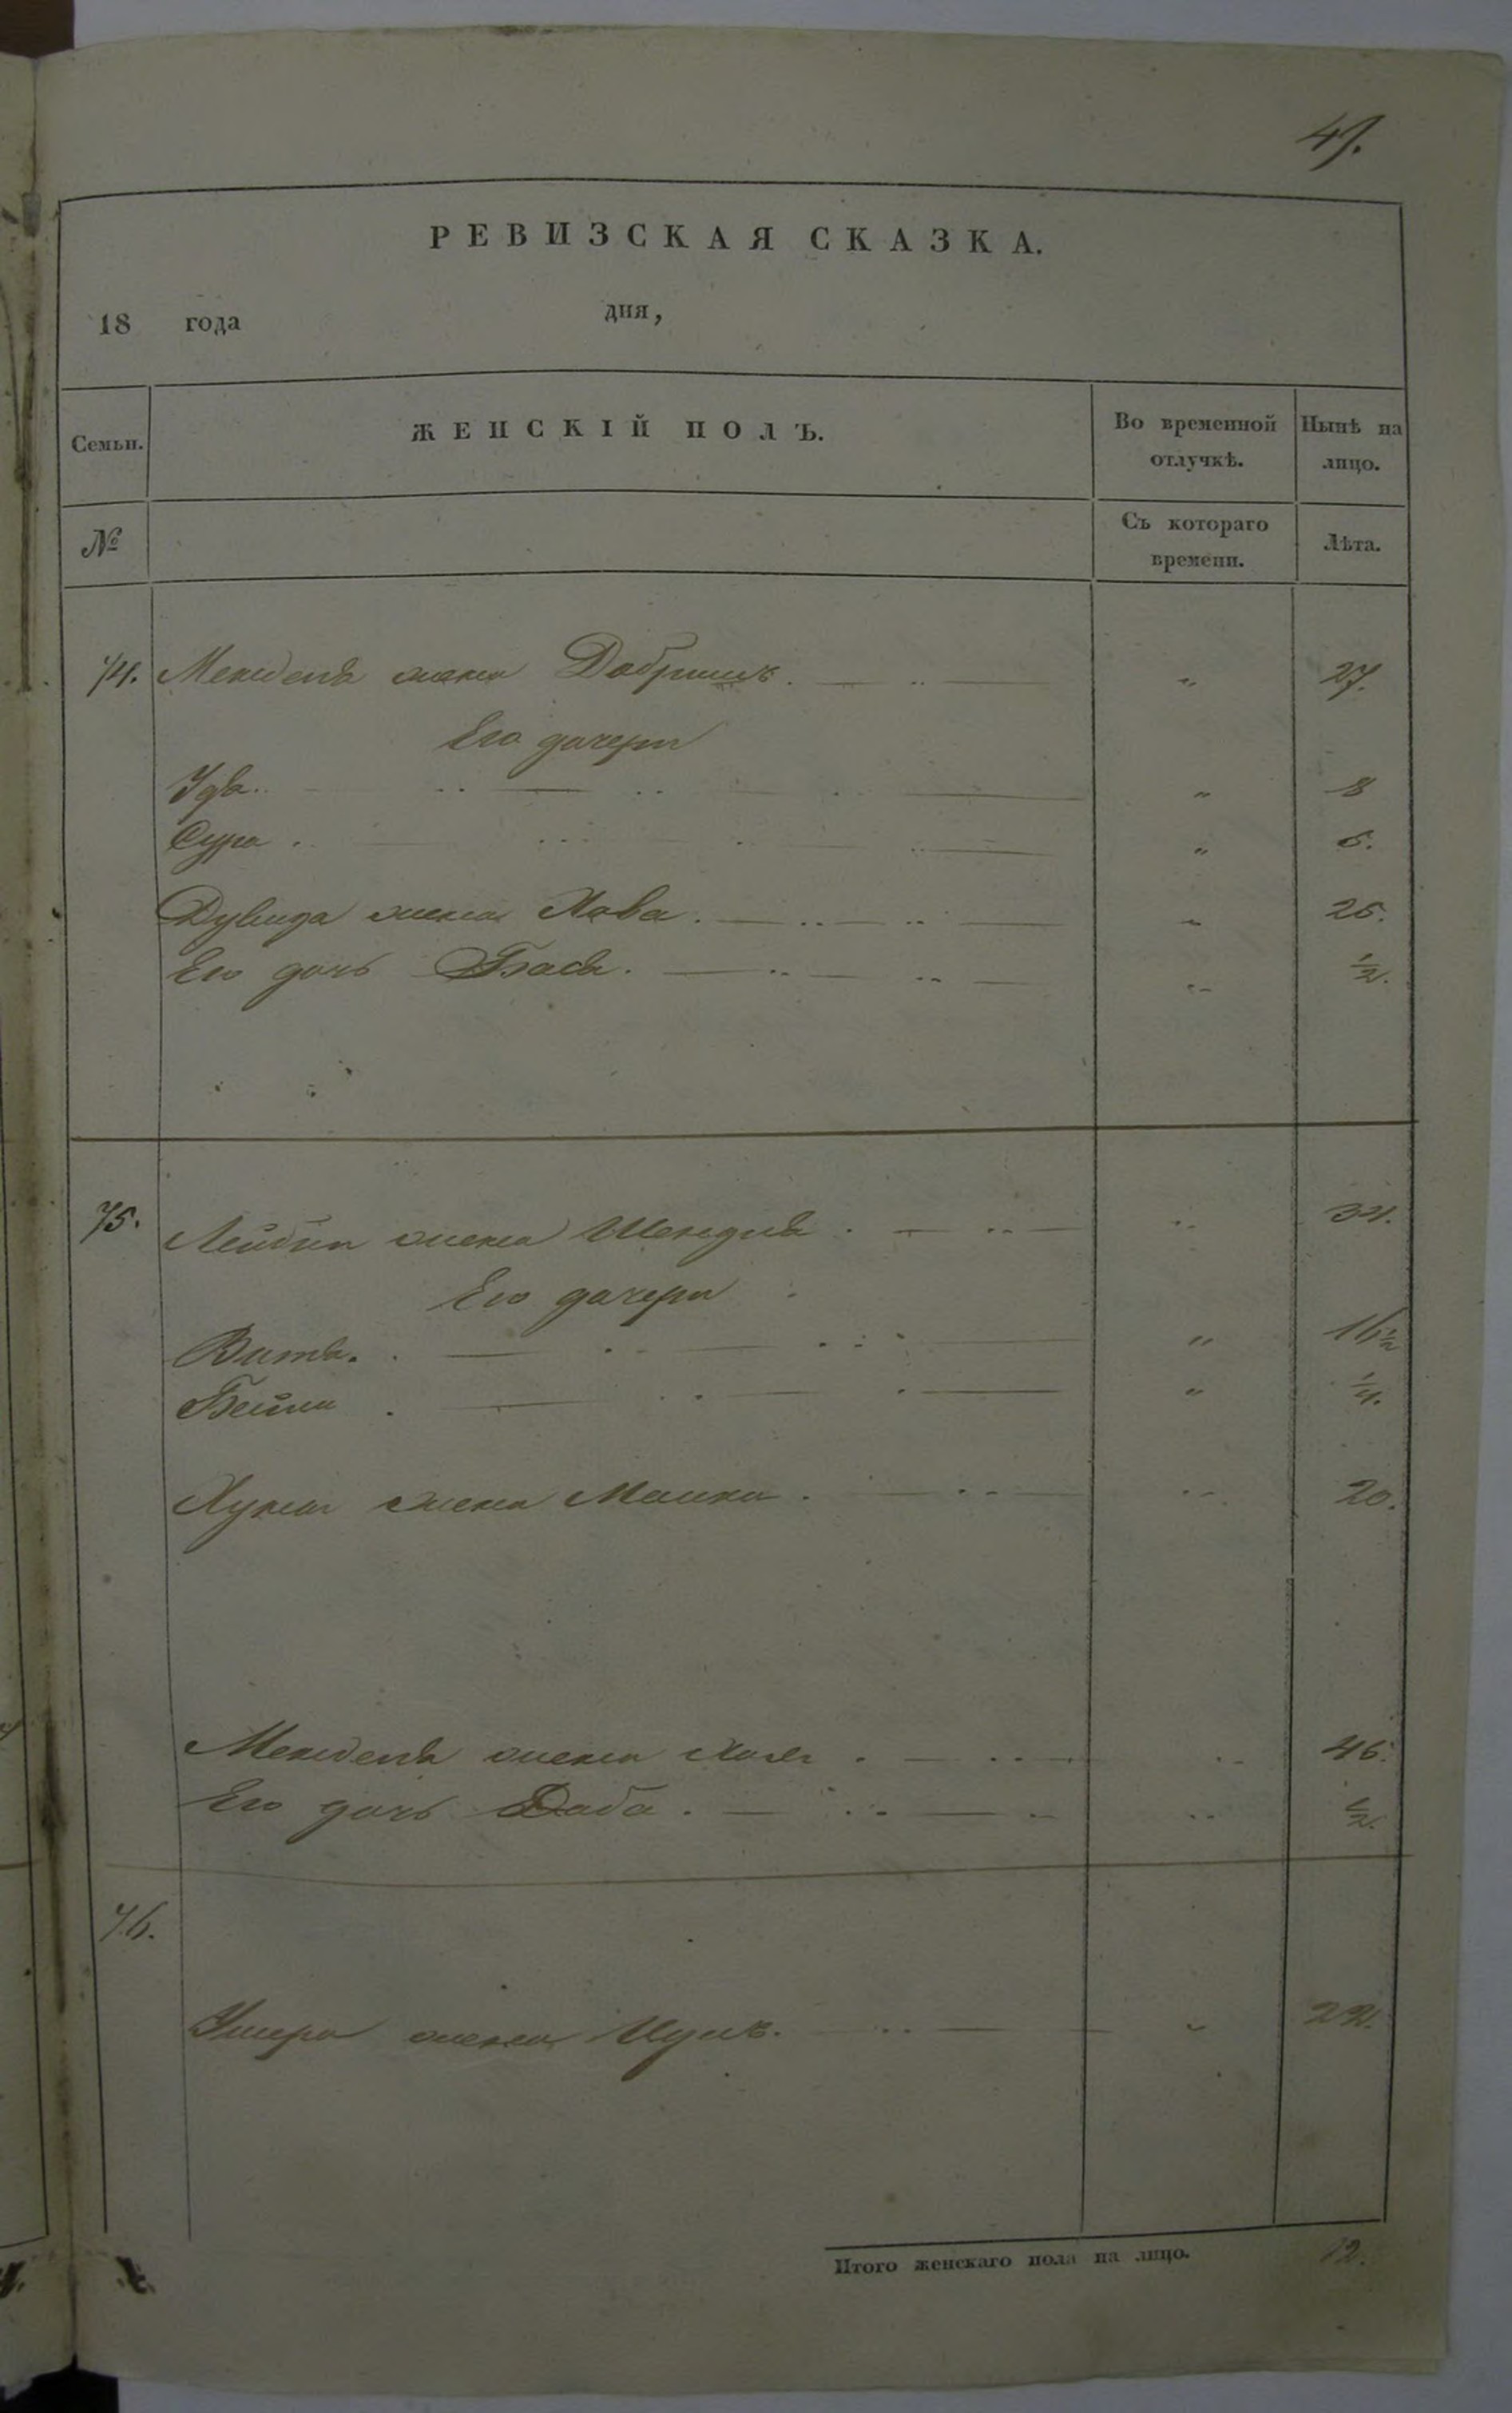 47.
РЕВИЗСКАЯ СКАЗКА.
18 года дня,
Семьи. ЖЕНСКІЙ ПОЛЪ. Во временной отлучкѣ. Нынѣ на лицо.
№ Съ котораго времени. Лѣта.
74. Менделя жена Добрышъ. „ 27.
Его дочери
Удя. „ 8
Сура. „ 5.
Дувида жена Хова. „ 25.
Его дочь Бася. „ 1/2.
75. Лейбы жена Шендля. „ 34.
Его дочери
Витя. „ 16 1/2
Бейла „ 1/4.
жена „ 20.
Менделя жена Хая. „ 46.
Его дочь Доба. „ 1/2.
76.
жена „ 22.
Итого женскаго пола на лицо. 12.